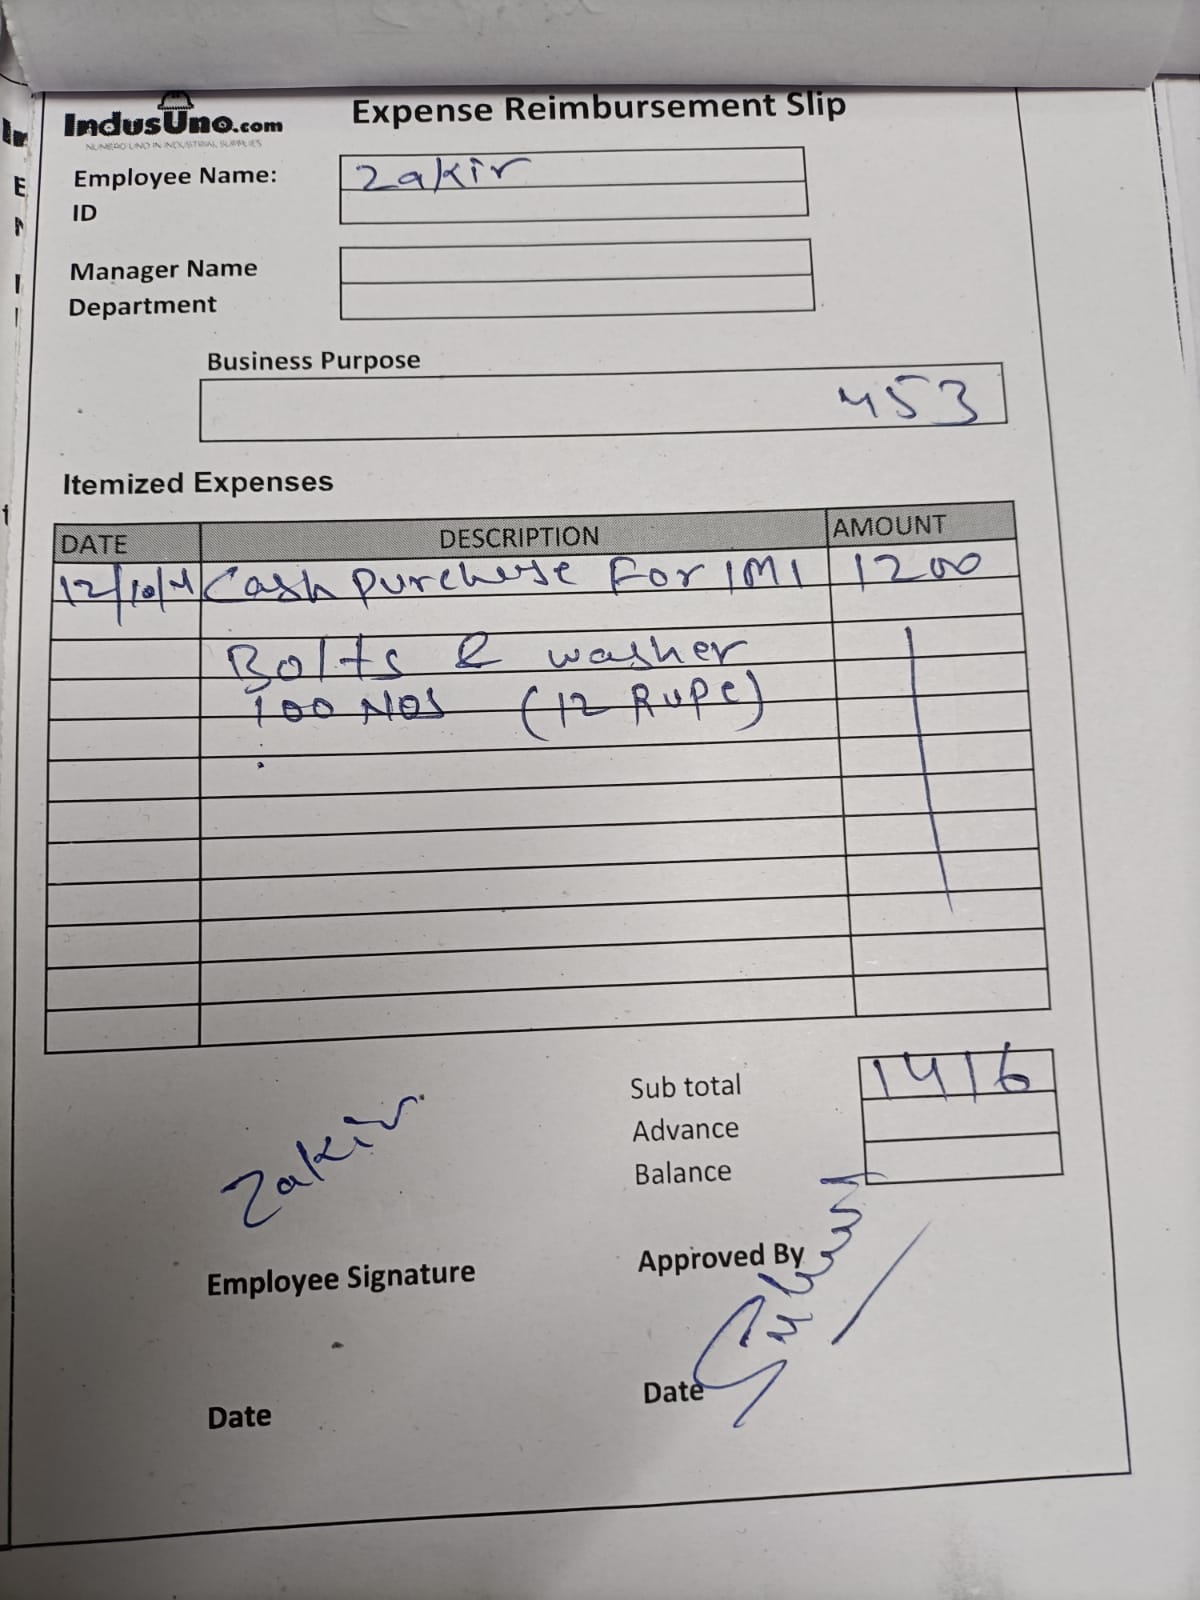 IndusUno.com
NUMERO UNO IN INDUSTRIAL SUPPLIES
Expense Reimbursement Slip
Employee Name: Zakir
ID
Manager Name
Department
Business Purpose
453
Itemized Expenses
DATE DESCRIPTION AMOUNT
12/10/4 Cash purchese For IMI 1200
Bolts & washer
100 NOS (12 Rupe)
Sub total 1416
Advance
Balance
Zakir
Employee Signature
Approved By
Date
Date